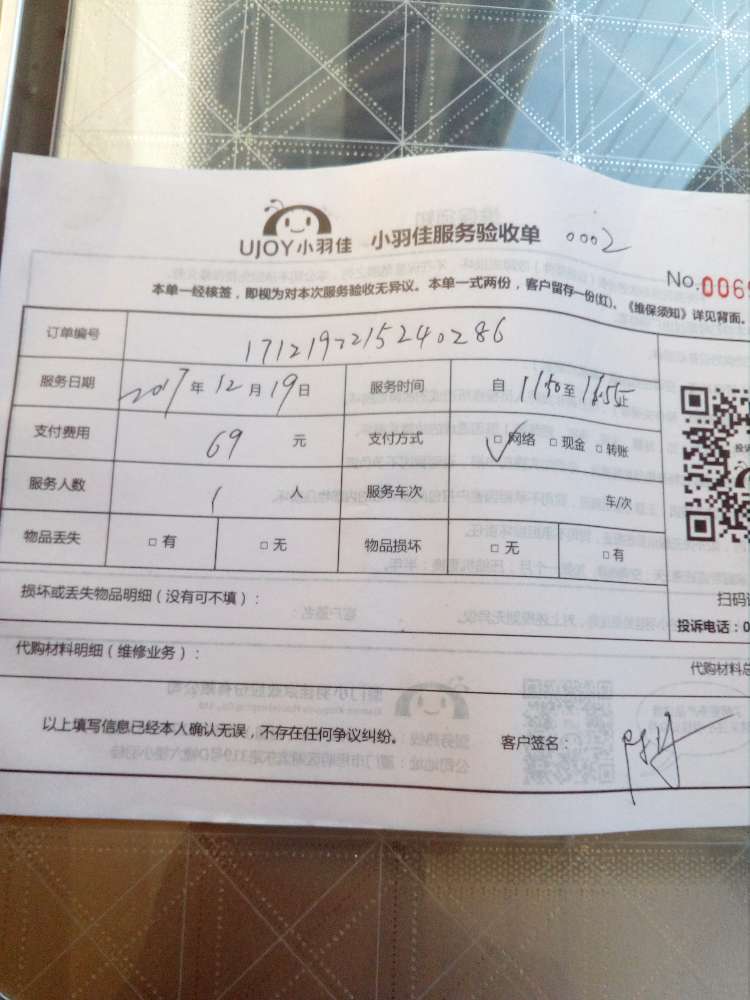 UJOY小羽佳 小羽佳服务验收单 0002
No.006
本单一经核签，即视为对本次服务验收无异议。本单一式两份，客户留存一份(红)、《维保须知》详见背面。
订单编号 1712197215240286
服务日期 2017年12月19日 服务时间 自11:50至16:55止
支付费用 69 元 支付方式 ✓□网络 □现金 □转账
服务人数 1 人 服务车次 车/次
物品丢失 □有 □无 物品损坏 □无 □有
损坏或丢失物品明细（没有可不填）：
扫码
投诉电话：0
代购材料明细（维修业务）：
代购材料总
以上填写信息已经本人确认无误，不存在任何争议纠纷。 客户签名：